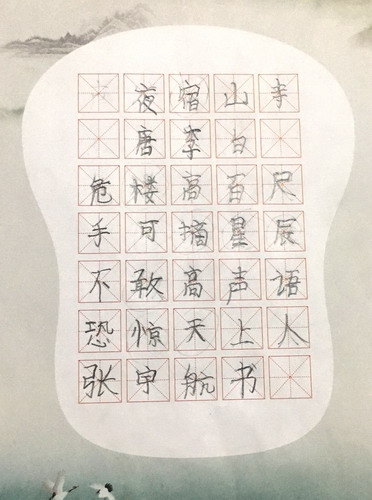 夜宿山寺
唐李白
危楼高百尺
手可摘星辰
不敢高声语
恐惊天上人
张宇航书